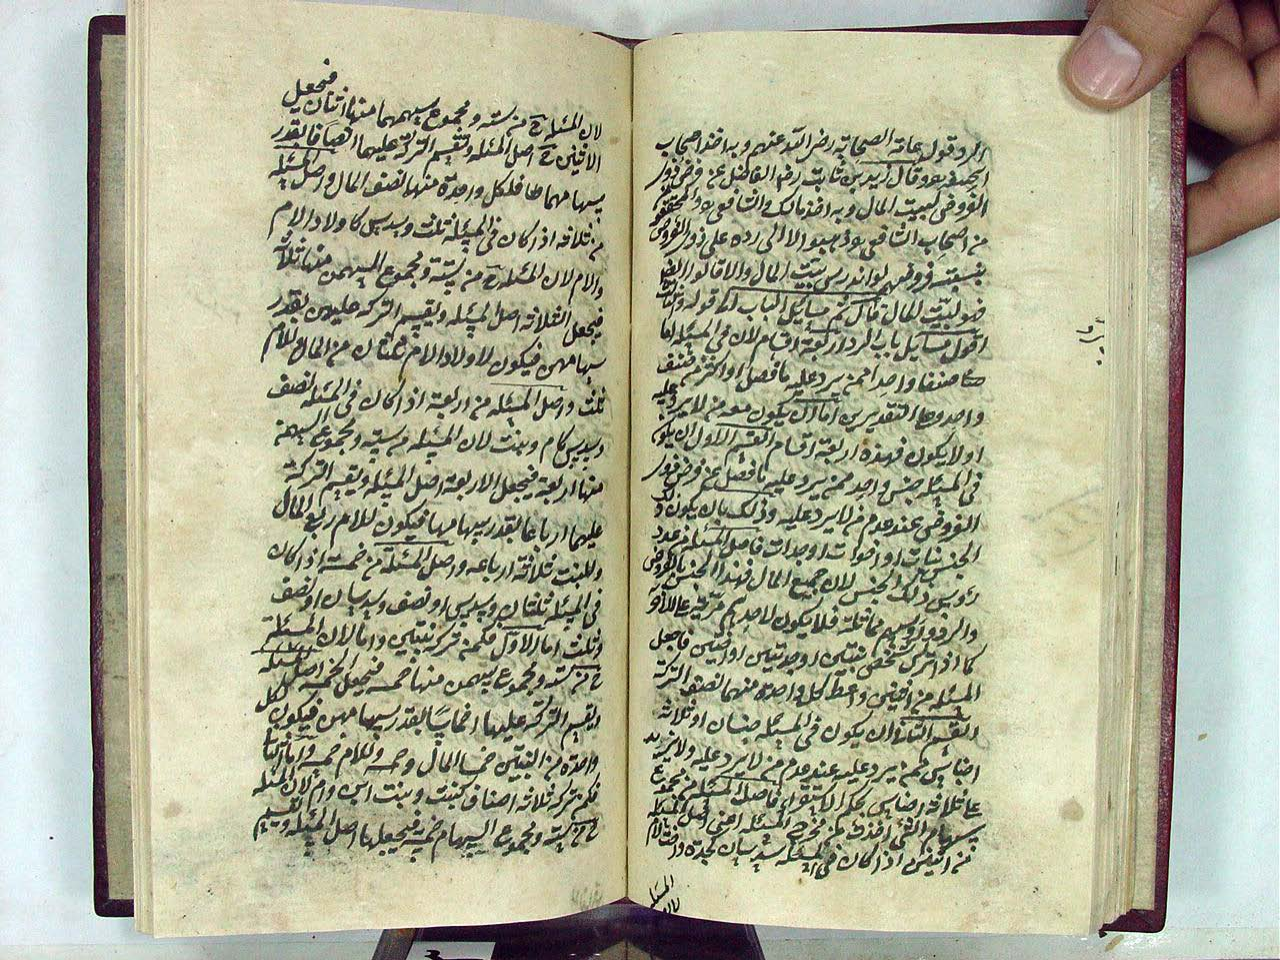 الرد وقول عامة الصحابة رضي الله عنهم وبه اخذ اصحاب
ابي حنيفة وقال زيد بن ثابت رضي الفاضل عن فرض ذوي
الفروض لبيت المال وبه اخذ مالك والشافعي والمحققون
من اصحاب الشافعي الا الى رده على ذوي الفروض
بنسبة فروضهم لو اندرس بيت المال والا قالوا الفضل
لبيت المال قال ثم مسايل الباب الى قوله
اقول مسايل باب الرد اربعة اقسام لان في المسئلة اما
صنفا واحدا ممن يرد عليه ما فضل او اكثر من صنف
واحد وعلى التقديرين اما ان يكون معه من لا يرد عليه
او لا يكون فهذه اربعة اقسام القسم الاول ان يكون
في المسئلة جنس واحد ممن يرد عليه ما فضل عن فرض ذوي
الفروض عند عدم من لا يرد عليه وذلك بان يكون
الجنس بنات او اخوات او جدات فاصل المسئلة من عدد
رؤس ذلك الجنس لان جميع المال لهذا الجنس بالفرض
والرد ورؤسهم مماثلة فلا يكون لاحدهم مزية على الاخر
كما اذا ترك شخص بنتين او جدتين او اختين فاجعل
المسئلة من اثنين واعط لكل واحدة منهما نصف التركة
القسم الثاني ان يكون في المسئلة جنسان او ثلاثة
اجناس ممن يرد عليه عند عدم من لا يرد عليه ولا يزيد
على ثلاثة اجناس بحكم الاستقراء فاصل المسئلة من مجموع
سهام التي اخذت من مخرج المسئلة اعني اصل المسئلة
من اثنين اذا كان في المسئلة سدسان كجدة واخت لام
المسئلة
لان
لان المسئلة ح من ستة ومجموع سهمهما منها اثنان فيجعل
الاثنين ح اصل المسئلة وتقسم التركة عليهما انصافا بقدر
سهامهما فلكل واحدة منهما نصف المال واصل المسئلة
من ثلاثة اذا كان في المسئلة ثلث وسدس كاولاد الام
والام لان المسئلة ح من ستة ومجموع السهمين منها ثلاثة
فيجعل الثلاثة اصل المسئلة ويقسم التركة عليهن بقدر
سهامهن فيكون لاولاد الام ثلثان من المال وللام
ثلث واصل المسئلة من اربعة اذا كان في المسئلة نصف
وسدس كام وبنت لان المسئلة من ستة ومجموع السهمين
منها اربعة فيجعل الاربعة اصل المسئلة ويقسم التركة
عليهما ارباعا بقدر سهامهما فيكون للام ربع المال
وللبنت ثلاثة ارباعه واصل المسئلة من خمسة اذا كان
في المسئلة ثلثان وسدس او نصف وسدسان او نصف
وثلث اما الاول فكمن ترك بنتين واما لان المسئلة
ح من ستة ومجموع سهمين منها خمسة فيجعل الخمسة اصل المسئلة
ويقسم التركة عليها اخماسا بقدر سهامهن فيكون لكل
واحدة من البنتين خمسا المال وخمسه وللام خمسه واما الثاني
فكمن ترك ثلاثة اصناف كبنت وبنت ابن وام لان المسئلة
ح من ستة ومجموع السهام خمسة فيجعلها اصل المسئلة ويقسم